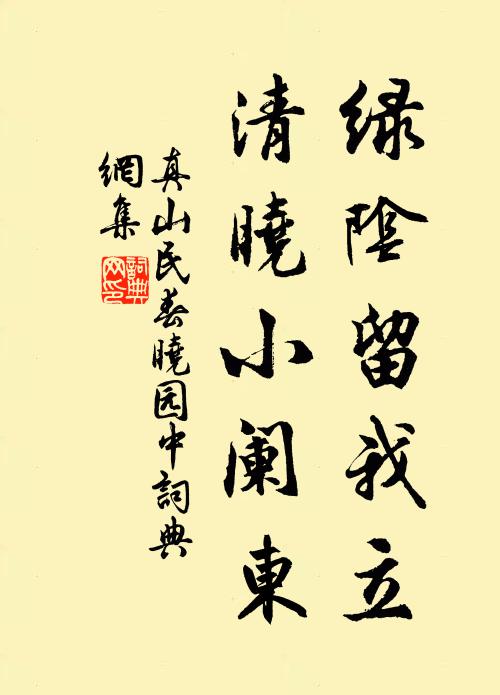 绿陰留我立
清曉小阑東
真山民春曉园中詞典
網集
詞典
网印